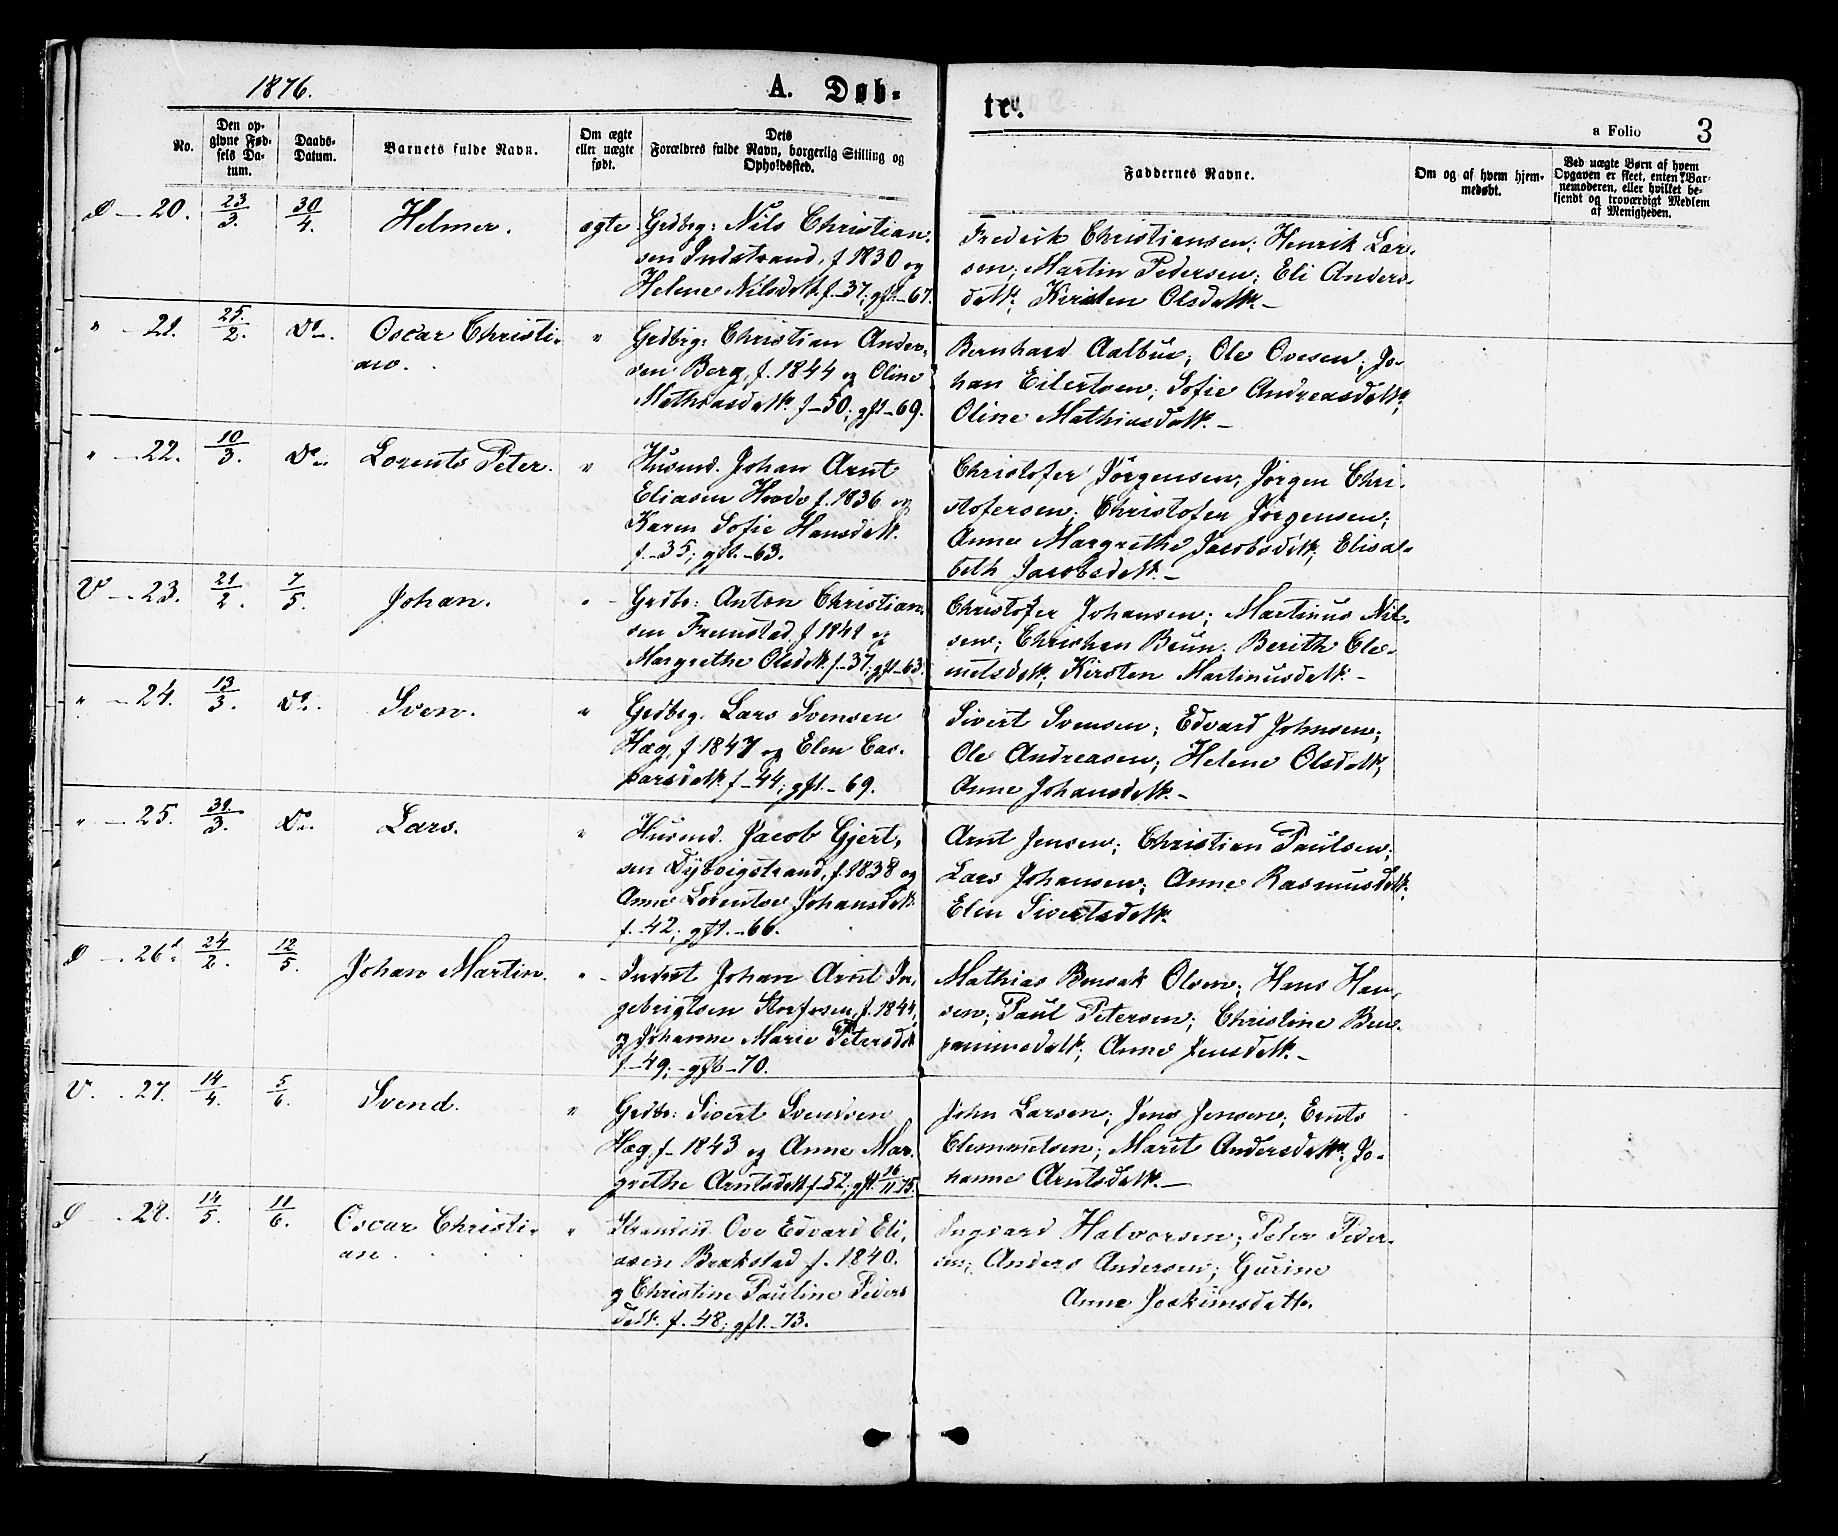 1876.
A. Døb-
te.
a Folio 3
No.
Den op-
givne Fød-
sels Da-
tum.
Daabs-
Datum.
Barnets fulde Navn.
Om ægte
eller uægte
født.
Dets
Forældres fulde Navn, borgerlig Stilling og
Opholdssted.
Faddernes Navne.
Om og af hvem hjem-
medøbt.
Ved uægte Børn af hvem
Opgaven er skeet, enten Bar-
nemoderen, eller hvilket be-
kjendt og troværdigt Medlem
af Menigheden.
20. 23/3. 30/4. Helmer. ægte
Grdbrg: Nils Christian-
sen Indstrand, f. 1830 og
Helene Nilsdatt. f. -37; gft. -67.
Frederik Christiansen; Henrik Lar-
sen; Martin Pedersen; Eli Anders-
datt. Kirsten Olsdatt. -
" 21. 25/2. Do. Oscar Christi-
an. "
Grdbrg: Christian Ander-
sen Berg, f. 1844 og Oline
Mathiasdatt. f. -50; gft. -69.
Bernhard Aalbue; Ole Ovesen; Jo-
han Eilertsen; Sofie Andreasdatt.;
Oline Mathiasdatt. -
" 22. 10/3. Do. Lorents Peter. "
Husmd. Johan Arnt
Eliasen f. 1836 og
Karen Sofie Hansdatt.
f. -35; gft. -63.
Christofer Jørgensen; Jørgen Chri-
stofersen; Christofer Jørgensen;
Anne Margrethe Jacobsdatt; Elisa-
beth Jacobsdatt. -
V 23. 21/2. 7/5. Johan. "
Grdbr: Anton Christian-
sen Fremstad, f. 1841 og
Margrethe Olsdatt. f. -37; gft. -63.
Christofer Johansen; Martinus Nil-
sen; Christian Bruun; Berith Cle-
metsdatt.; Kirsten Martinusdatt. -
" 24. 13/3. Do. Sven. "
Grdbrg. Lars Svensen
Hæg, f. 1847 og Elen Cas-
parsdatt. f. -44; gft. -69.
Sivert Svensen; Edvard Johnsen;
Ole Andreasen; Helene Olsdatt.;
Anne Johansdatt. -
" 25. 31/3. Do. Lars. "
Husmd. Jacob Gjert-
sen Dybvigstrand, f. 1838 og
Anne Lorentse Johansdatt.
f. -42; gft. -66.
Arnt Jensen; Christian Paulsen;
Lars Johansen; Anne Rasmusdatt.
Elen Sivertsdatt.
26. 24/2. 12/5. Johan Martin. "
Inderst Johan Arnt In-
gebrigtsen Storfosen, f. 1844,
og Johanne Marie Petersdatt
f. -49; gft. -70.
Mathias Olsen; Hans Han-
sen; Paul Petersen; Christine Ben-
jaminsdatt.; Anne Jensdatt. -
V. 27. 14/4. 5/6. Svend. "
Grdbr: Sivert Svendsen
Hæg, f. 1843 og Anne Mar-
grethe Arntsdatt f. -52; gft. 16/11 75.
John Larsen; Jens Jensen; Ernts
Clemmetsen; Marit Andersdatt.; Jo-
hanne Arntsdatt. -
28. 14/5. 11/6. Oscar Christi-
an. "
Strandsd. Ove Edvard Eli-
asen Brækstad f. 1840.
og Christine Pauline Peders
datt. f. -48; gft. -73.
Ingvard Halvorsen; Peter Peder-
sen; Anders Andersen; Gurine
Anne Joakimsdatt.